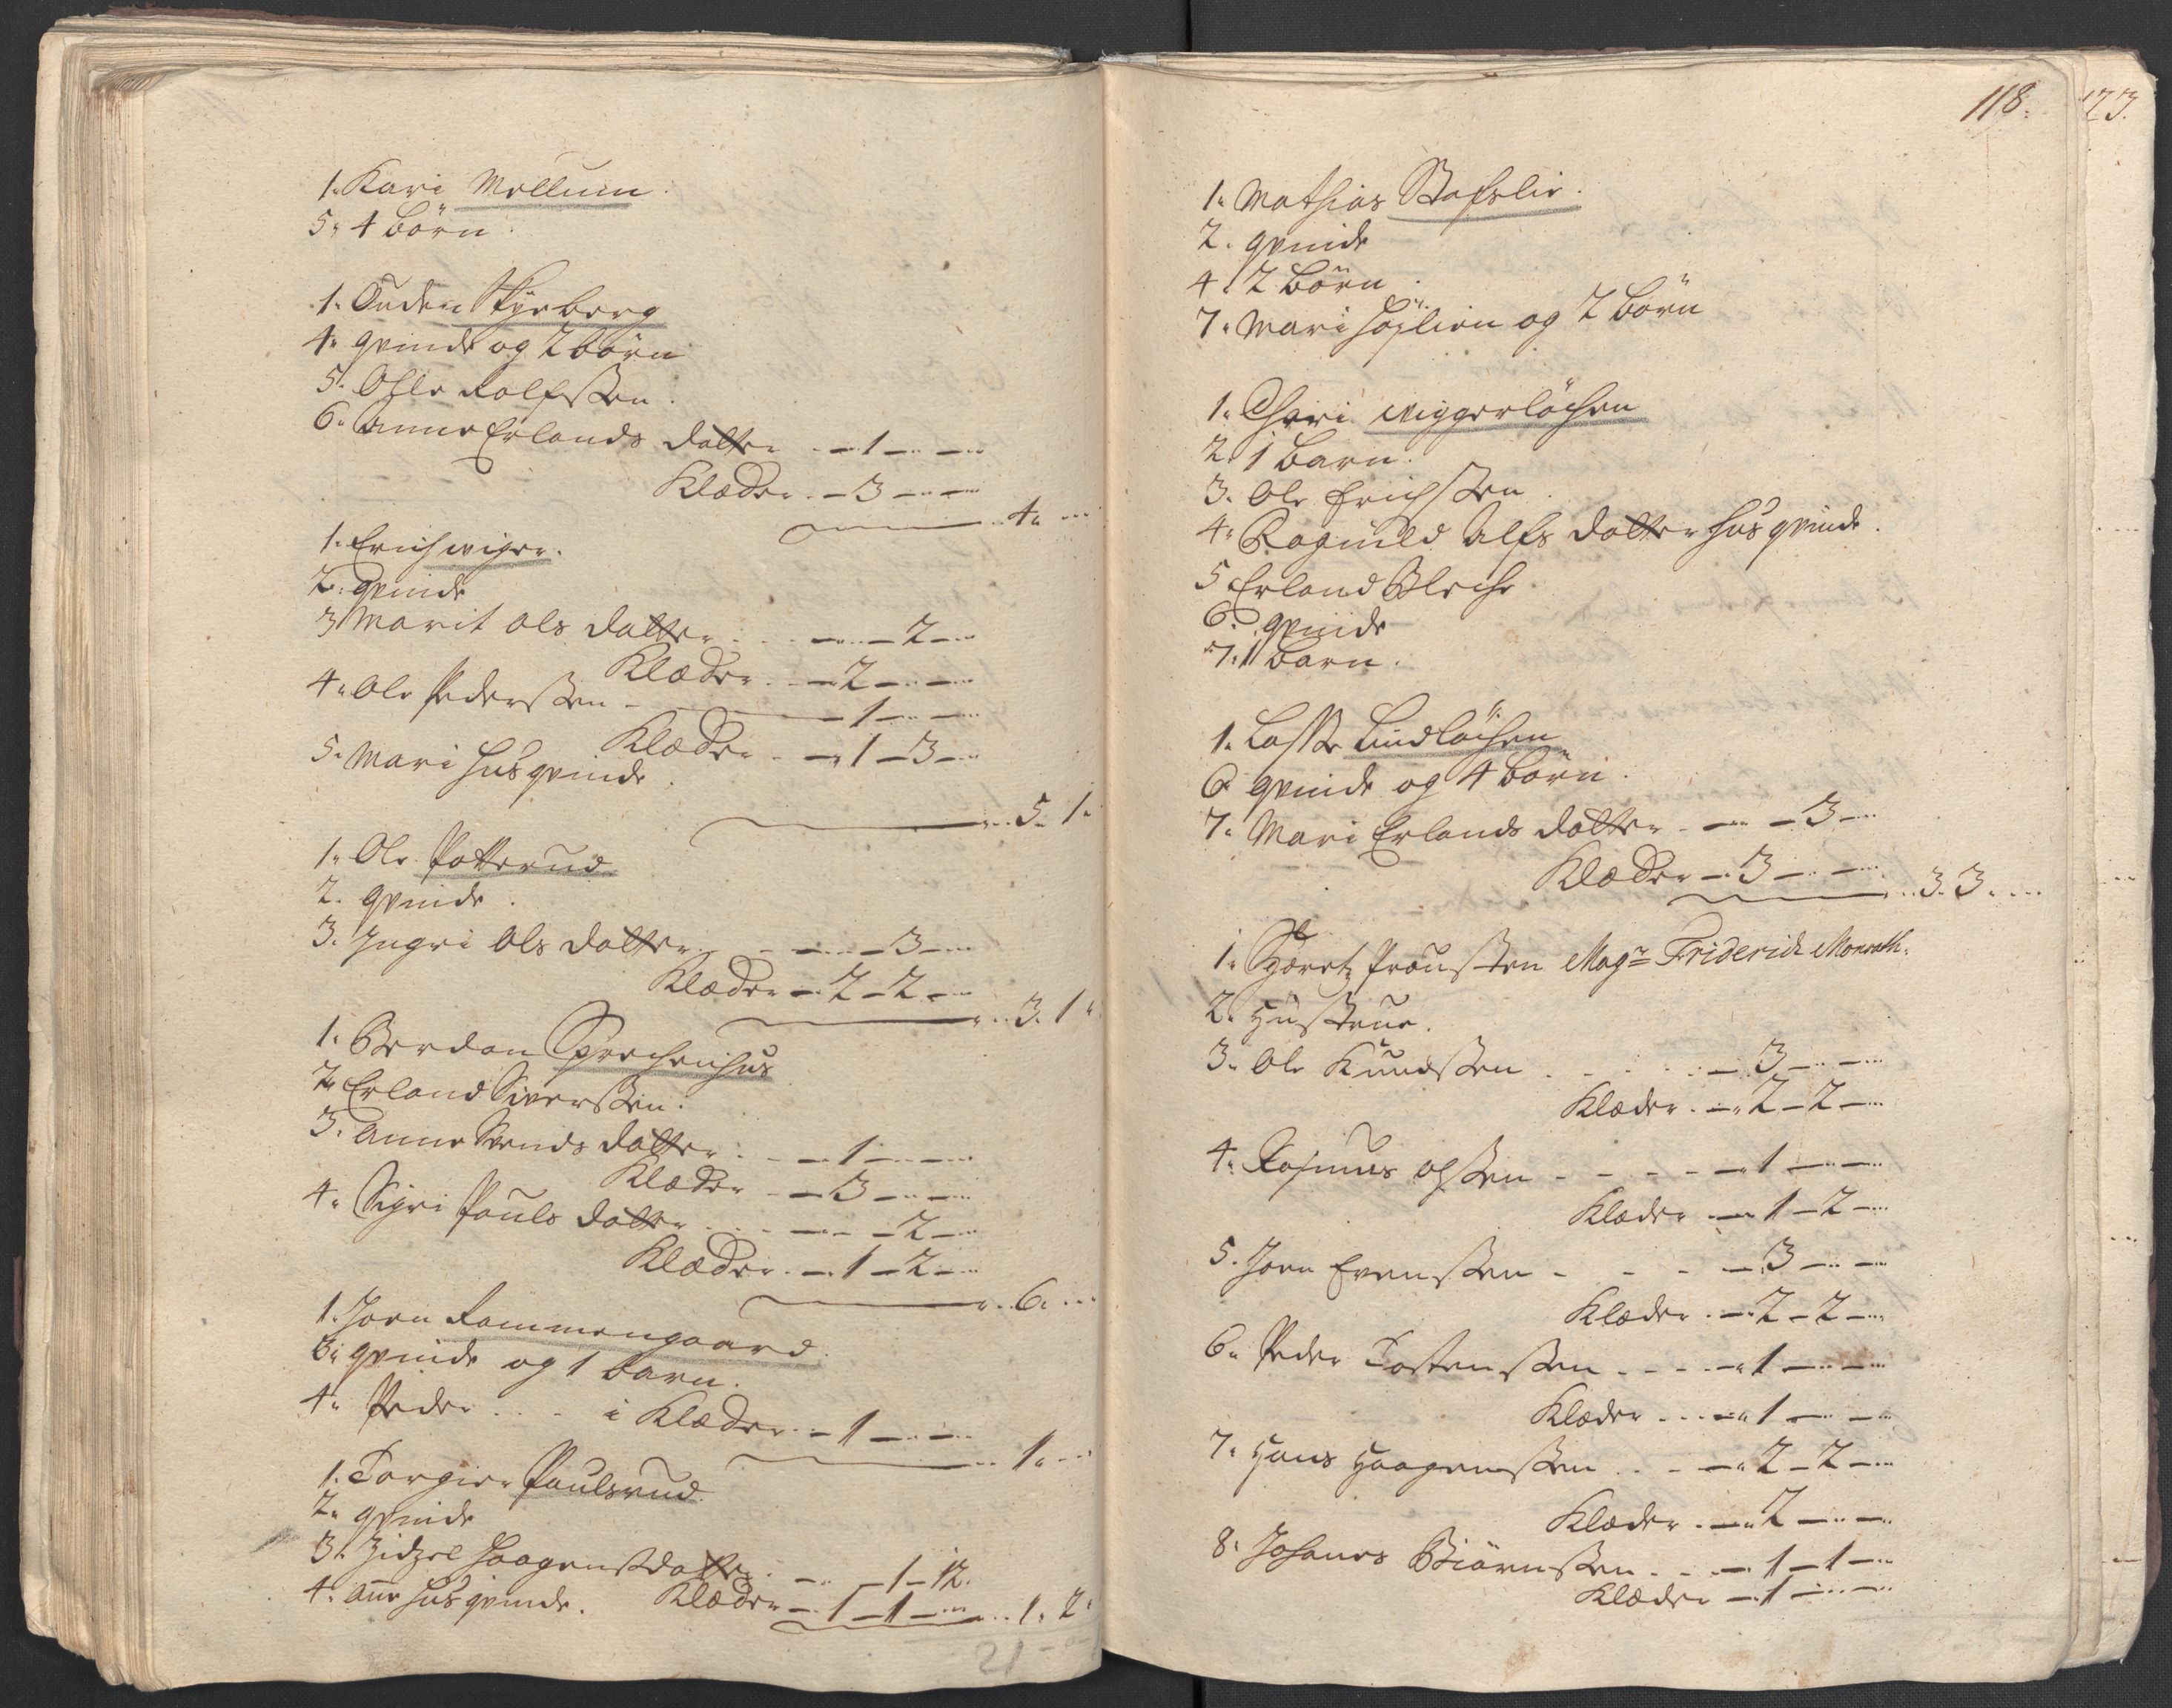 1. Kari Mellum
5. 4 börn.
1. Auden Nyeberg
4. qvinde og 2 börn
5. Ohle Rolfsen.
6. Anne Erlands datter - 1 - -
Klæder. - 3 - -
4. ...
1. Erich wigen.
2. qvinde
3 Marit Ols datter - 2 -
Klæder. - 2 - -
4. Ole Pedersen - 1 - -
Klæder - 1 - 3 -
5. Mari husqvinde.
5. 1.
1. Ole Potterud
2. qvinde.
3. Ingri Ols datter - 3 -
Klæder - 2 - 2 -
3. 1.
1. Berdon Sprechenhus
2. Erland Siversen.
3. Anne Svends datter - 1 - -
Klæder - 3 - -
4. Sigri Pouls datter - 2 -
Klæder. - 1 - 2 -
6. ...
1. Joen Rommengaard.
3. qvinde og 1 barn.
4. Peder . . . i Klæder - 1 - -
1. ...
1. Torgier Poulsrud.
2. qvinde
3. Zidzel Haagensdatter - 1 - 12.
4. Ane husqvinde. Klæder - 1 - 1 - 1. 2.
21 - 0 -
118.
123.
1. Mathias Stafslie.
2. qvinde
4. 2 börn.
7. Mari Höÿlien og 2 börn
1. Cheri wiggerlöchen
2. 1 barn.
3. Ole Erichsen.
4. Ragnild Alfs datter husqvinde.
5 Erland Bleche
6. qvinde
7. 1 barn.
1. Lasse Lindlöchen
6. qvinde og 4 börn.
7. Mari Erlands datter - 3 -
Klæder - 3 - -
3. 3. ...
1. Hr Prousten Magr Friderich Monrath.
2. Hustrue.
3. Ole Knudsen - 3 - -
Klæder. - 2 - 2 -
4. Rasmus Olsen - 1 - -
Klæder - 1 - 2 -
5. Joen Evensen - 3 - -
Klæder. - 2 - 2 -
6. Peder Tostensen - 1 - -
Klæder - 1 - -
7. Hans Haagensen - 2 - 2 -
Klæder. - 2 - -
8. Johanes Biörnsen - 1 - 1 -
Klæder - 1 - -